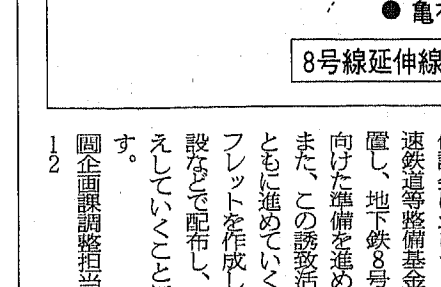 ● 亀
8号線延伸線
速鉄道等整備基金
置し、地下鉄8号
向けた準備を進め
また、この誘致活
ともに進めていく
フレットを作成し
設などで配布し、
えしていくこと
す。
問企画課調整担当
12